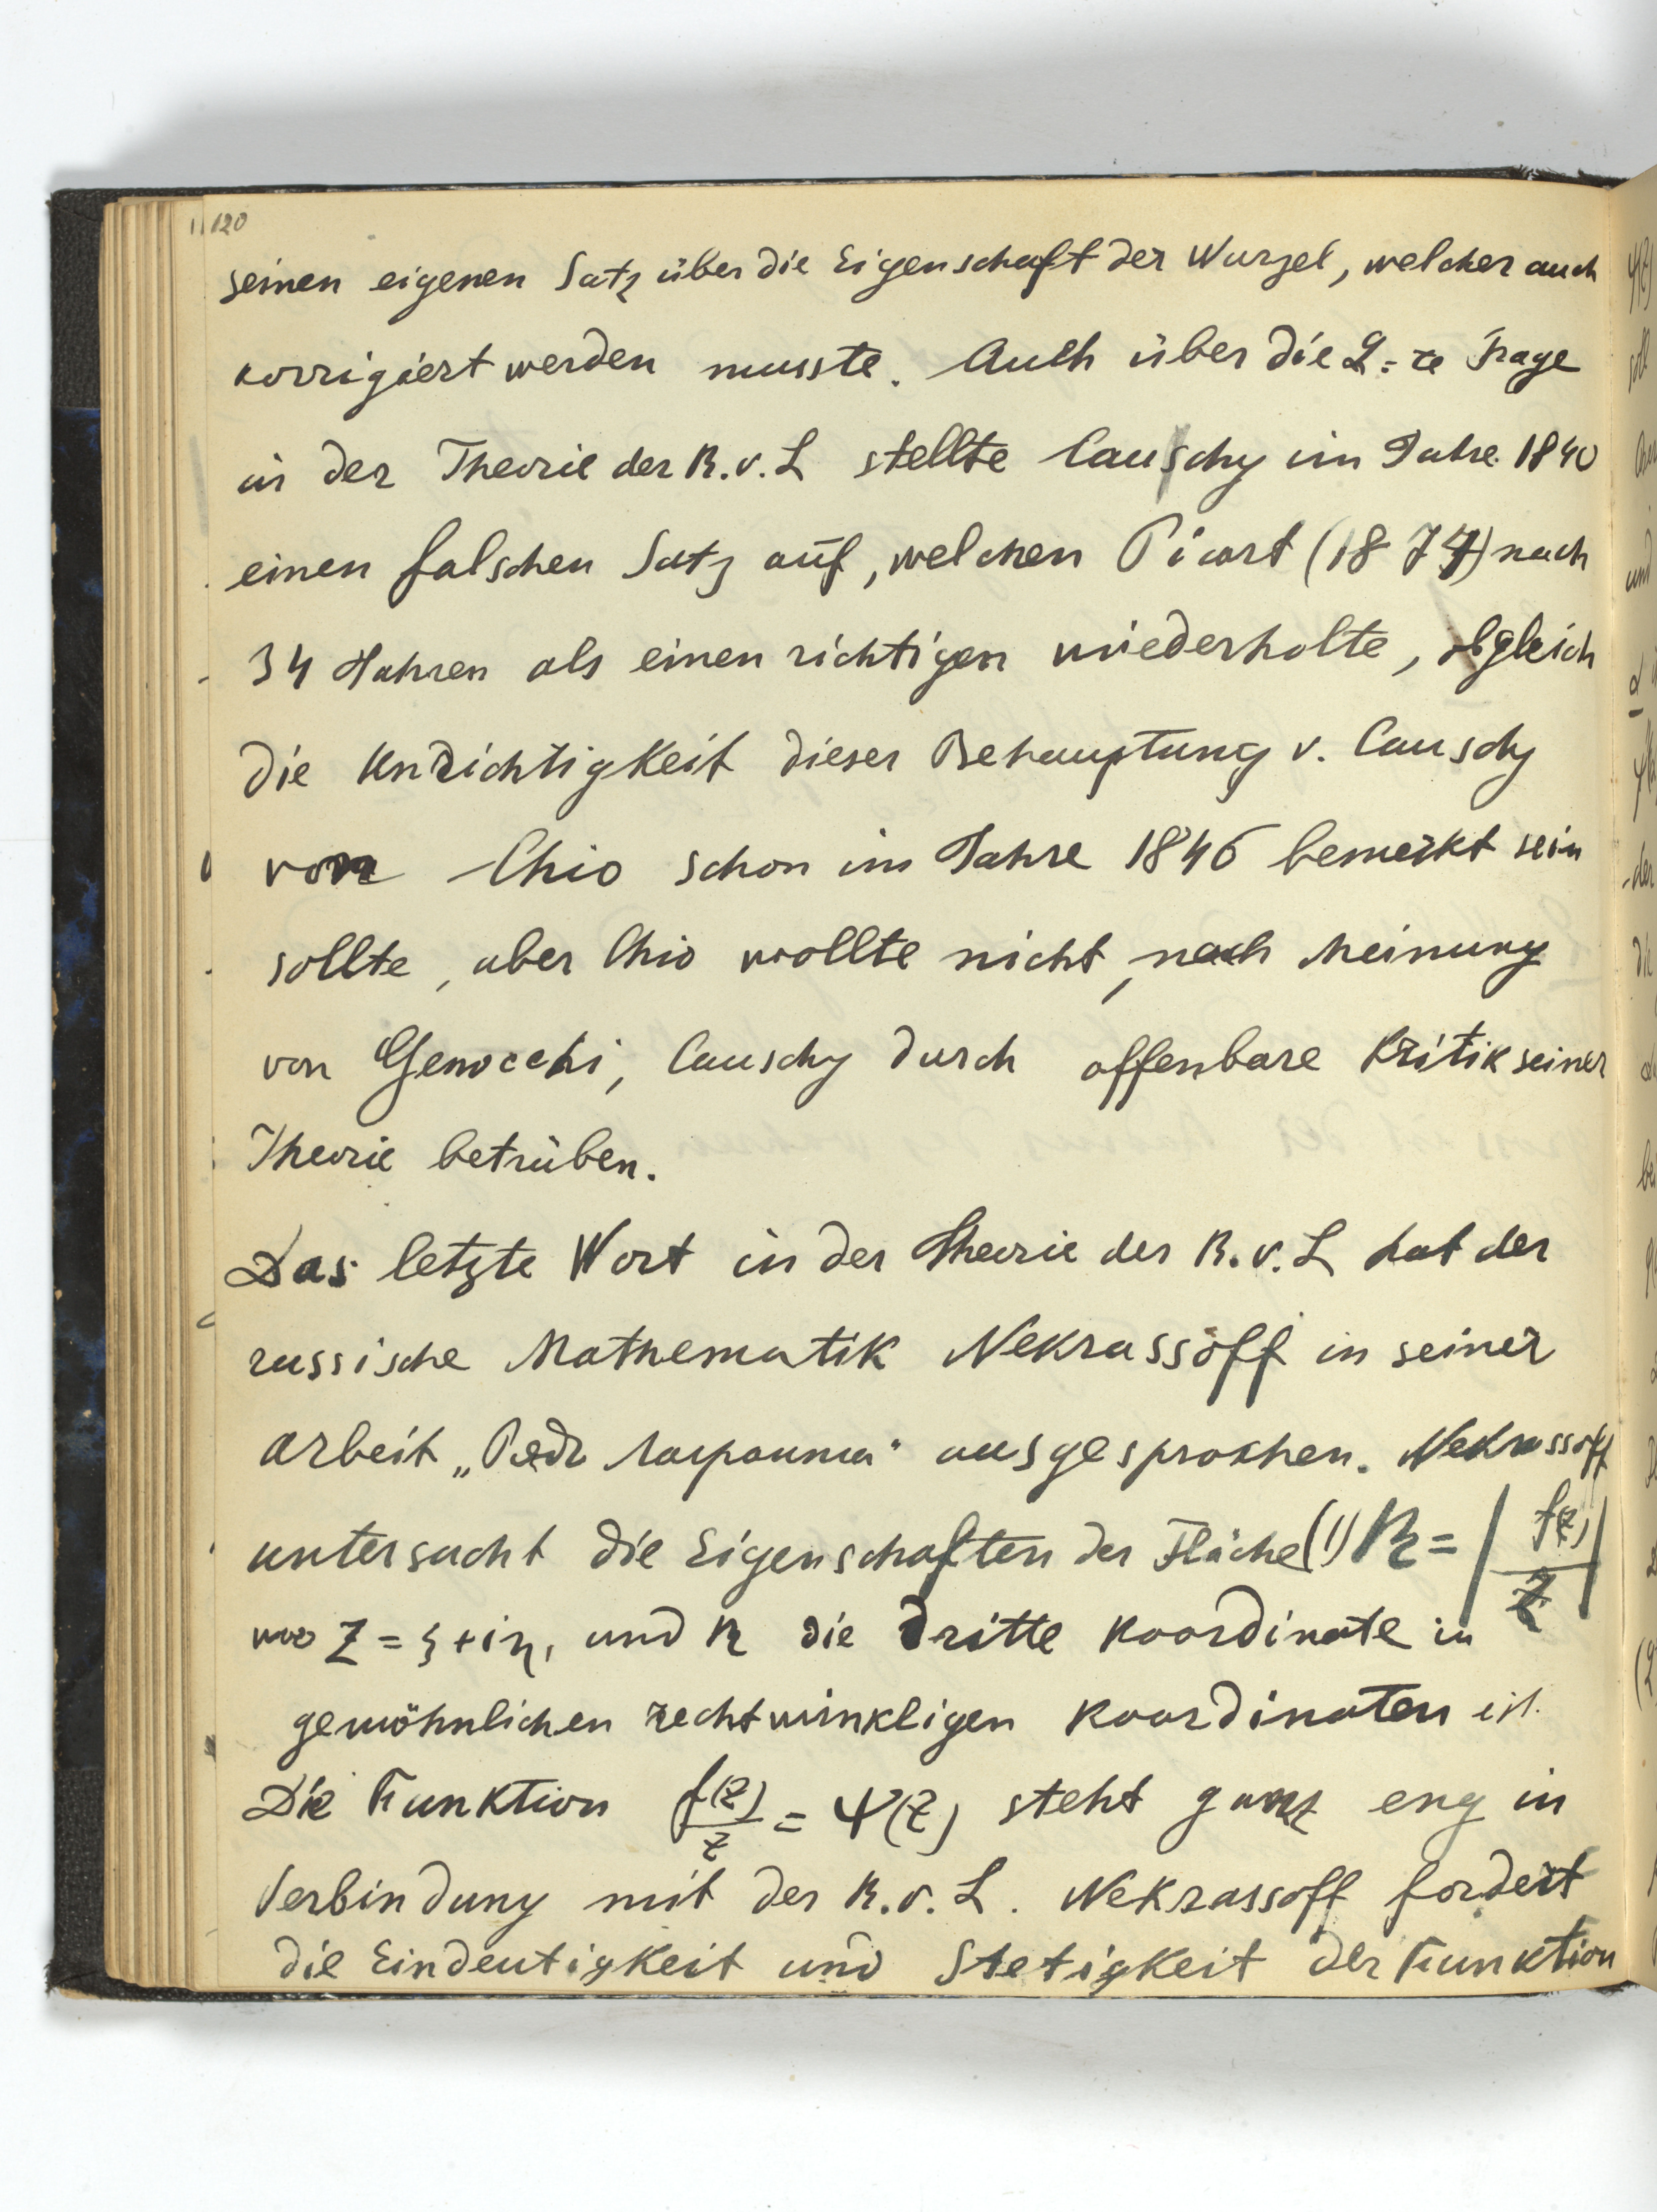 120
seinen eigenen Satz über die Eigenschaft der Wurzel, welcher auch
korrigiert werden musste. Auch über die 2-te Frage
in der Theorie der R.v.L stellte Causchy im Jahre 1840
einen falschen Satz auf, welchen Picart (1874) nach
34 Jahren als einen richtigen wiederholte, obgleich
die Unrichtigkeit dieser Behauptung v. Causchy
von Chio schon im Jahre 1846 bemerkt sein
sollte, aber Chio wollte nicht, nach Meinung
von Genocchi, Causchy durch offenbare Kritik seiner
Theorie betrüben.
Das letzte Wort in der Theorie der R.v.L hat der
russische Mathematik Nekrassoff in seiner
Arbeit „Рядъ Лагранжа“ ausgesprochen. Nekrassoff
untersucht die Eigenschaften der Fläche (1) R = | f(z) / z |
wo z = ξ + iη, und R die dritte Koordinate in
gewöhnlichen rechtwinkligen Koordinaten ist.
Die Funktion f(z)/z = Ψ(z) steht ganz eng in
Verbindung mit der R.v.L. Nekrassoff fordert
die Eindeutigkeit und Stetigkeit der Funktion